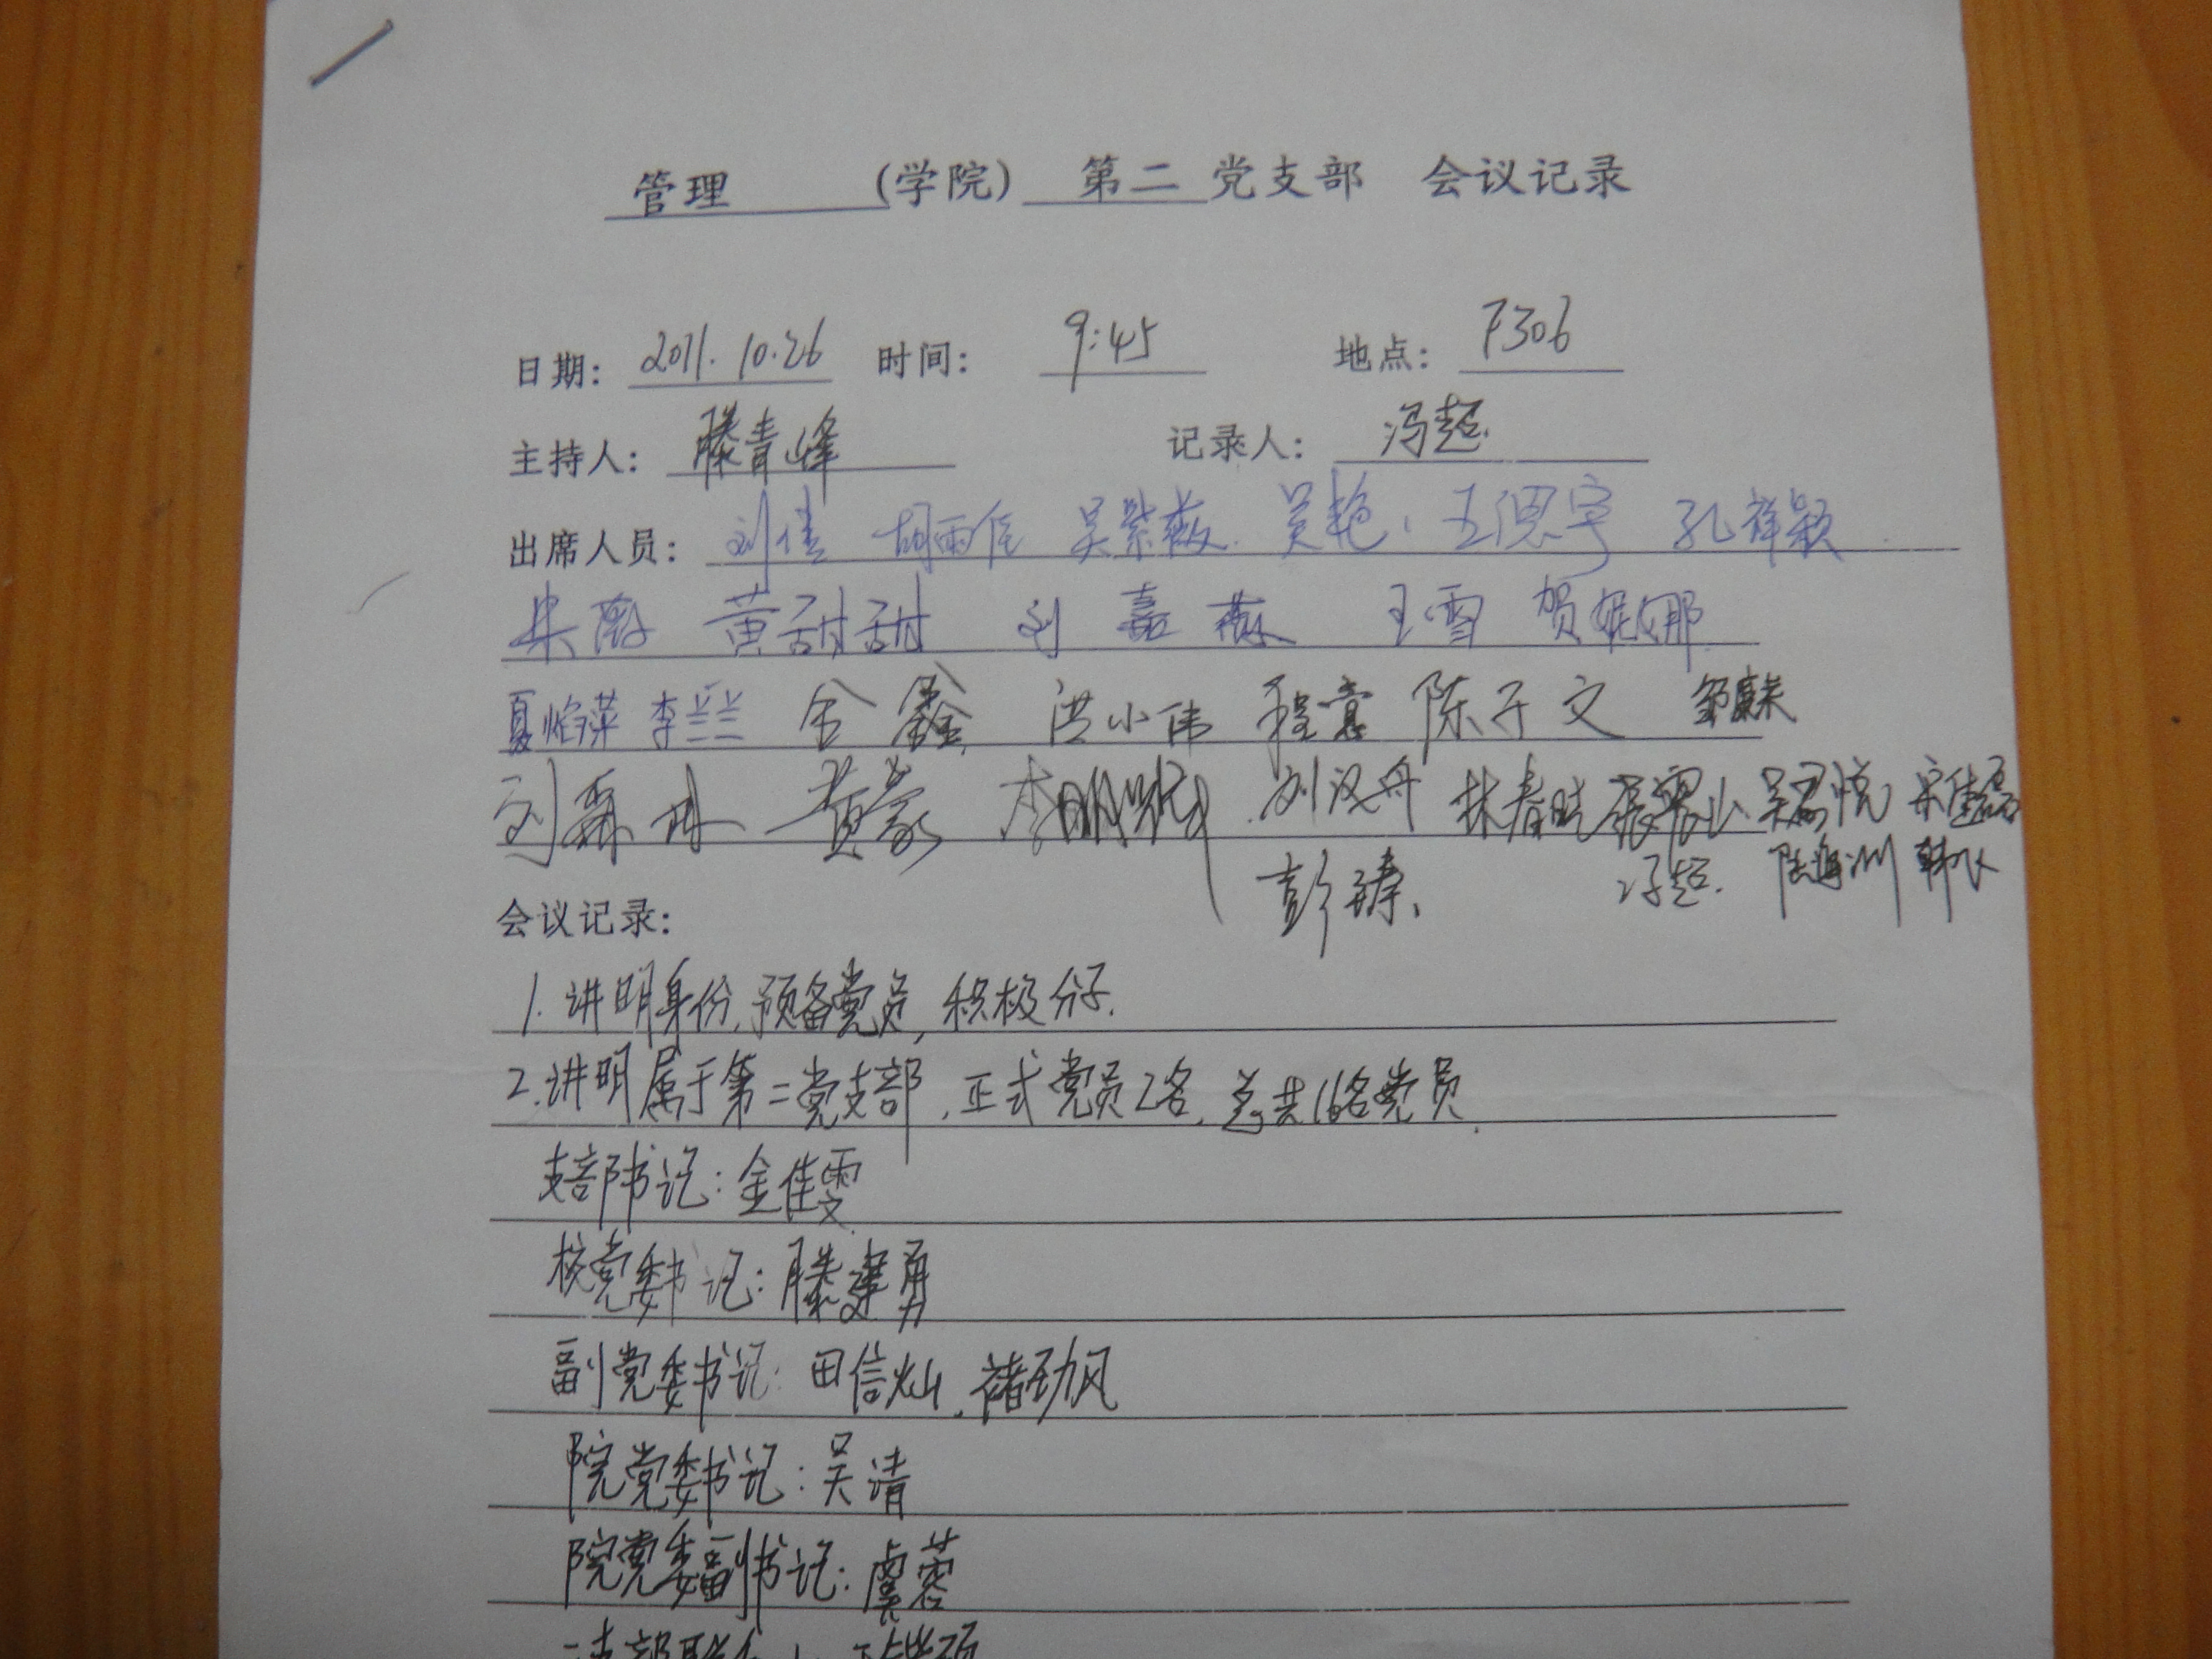 管理 (学院) 第二 党支部 会议记录
日期: 2011.10.26 时间: 9:45 地点: F306
主持人: 滕青峰 记录人: 冯超
出席人员: 刘佳 胡雨辰 吴紫薇 吴艳 王思宇 孔祥颖
朱 黄甜甜 刘嘉薇 王雪 贺妮娜
夏焰萍 李兰兰 金鑫 洪小伟 程意 陈子文 邹康
刘森 黄豪 李明 刘汉丹 林春 张雪山 吴君悦 宋佳磊
彭臻 冯超 陆海洲 韩
会议记录:
1. 讲明身份,预备党员,积极分子.
2. 讲明属于第二党支部,正式党员2名,总共16名党员.
支部书记:金佳雯
校党委书记:滕建勇
副党委书记:田信灿,褚劲风
院党委书记:吴清
院党委副书记:虞蓉